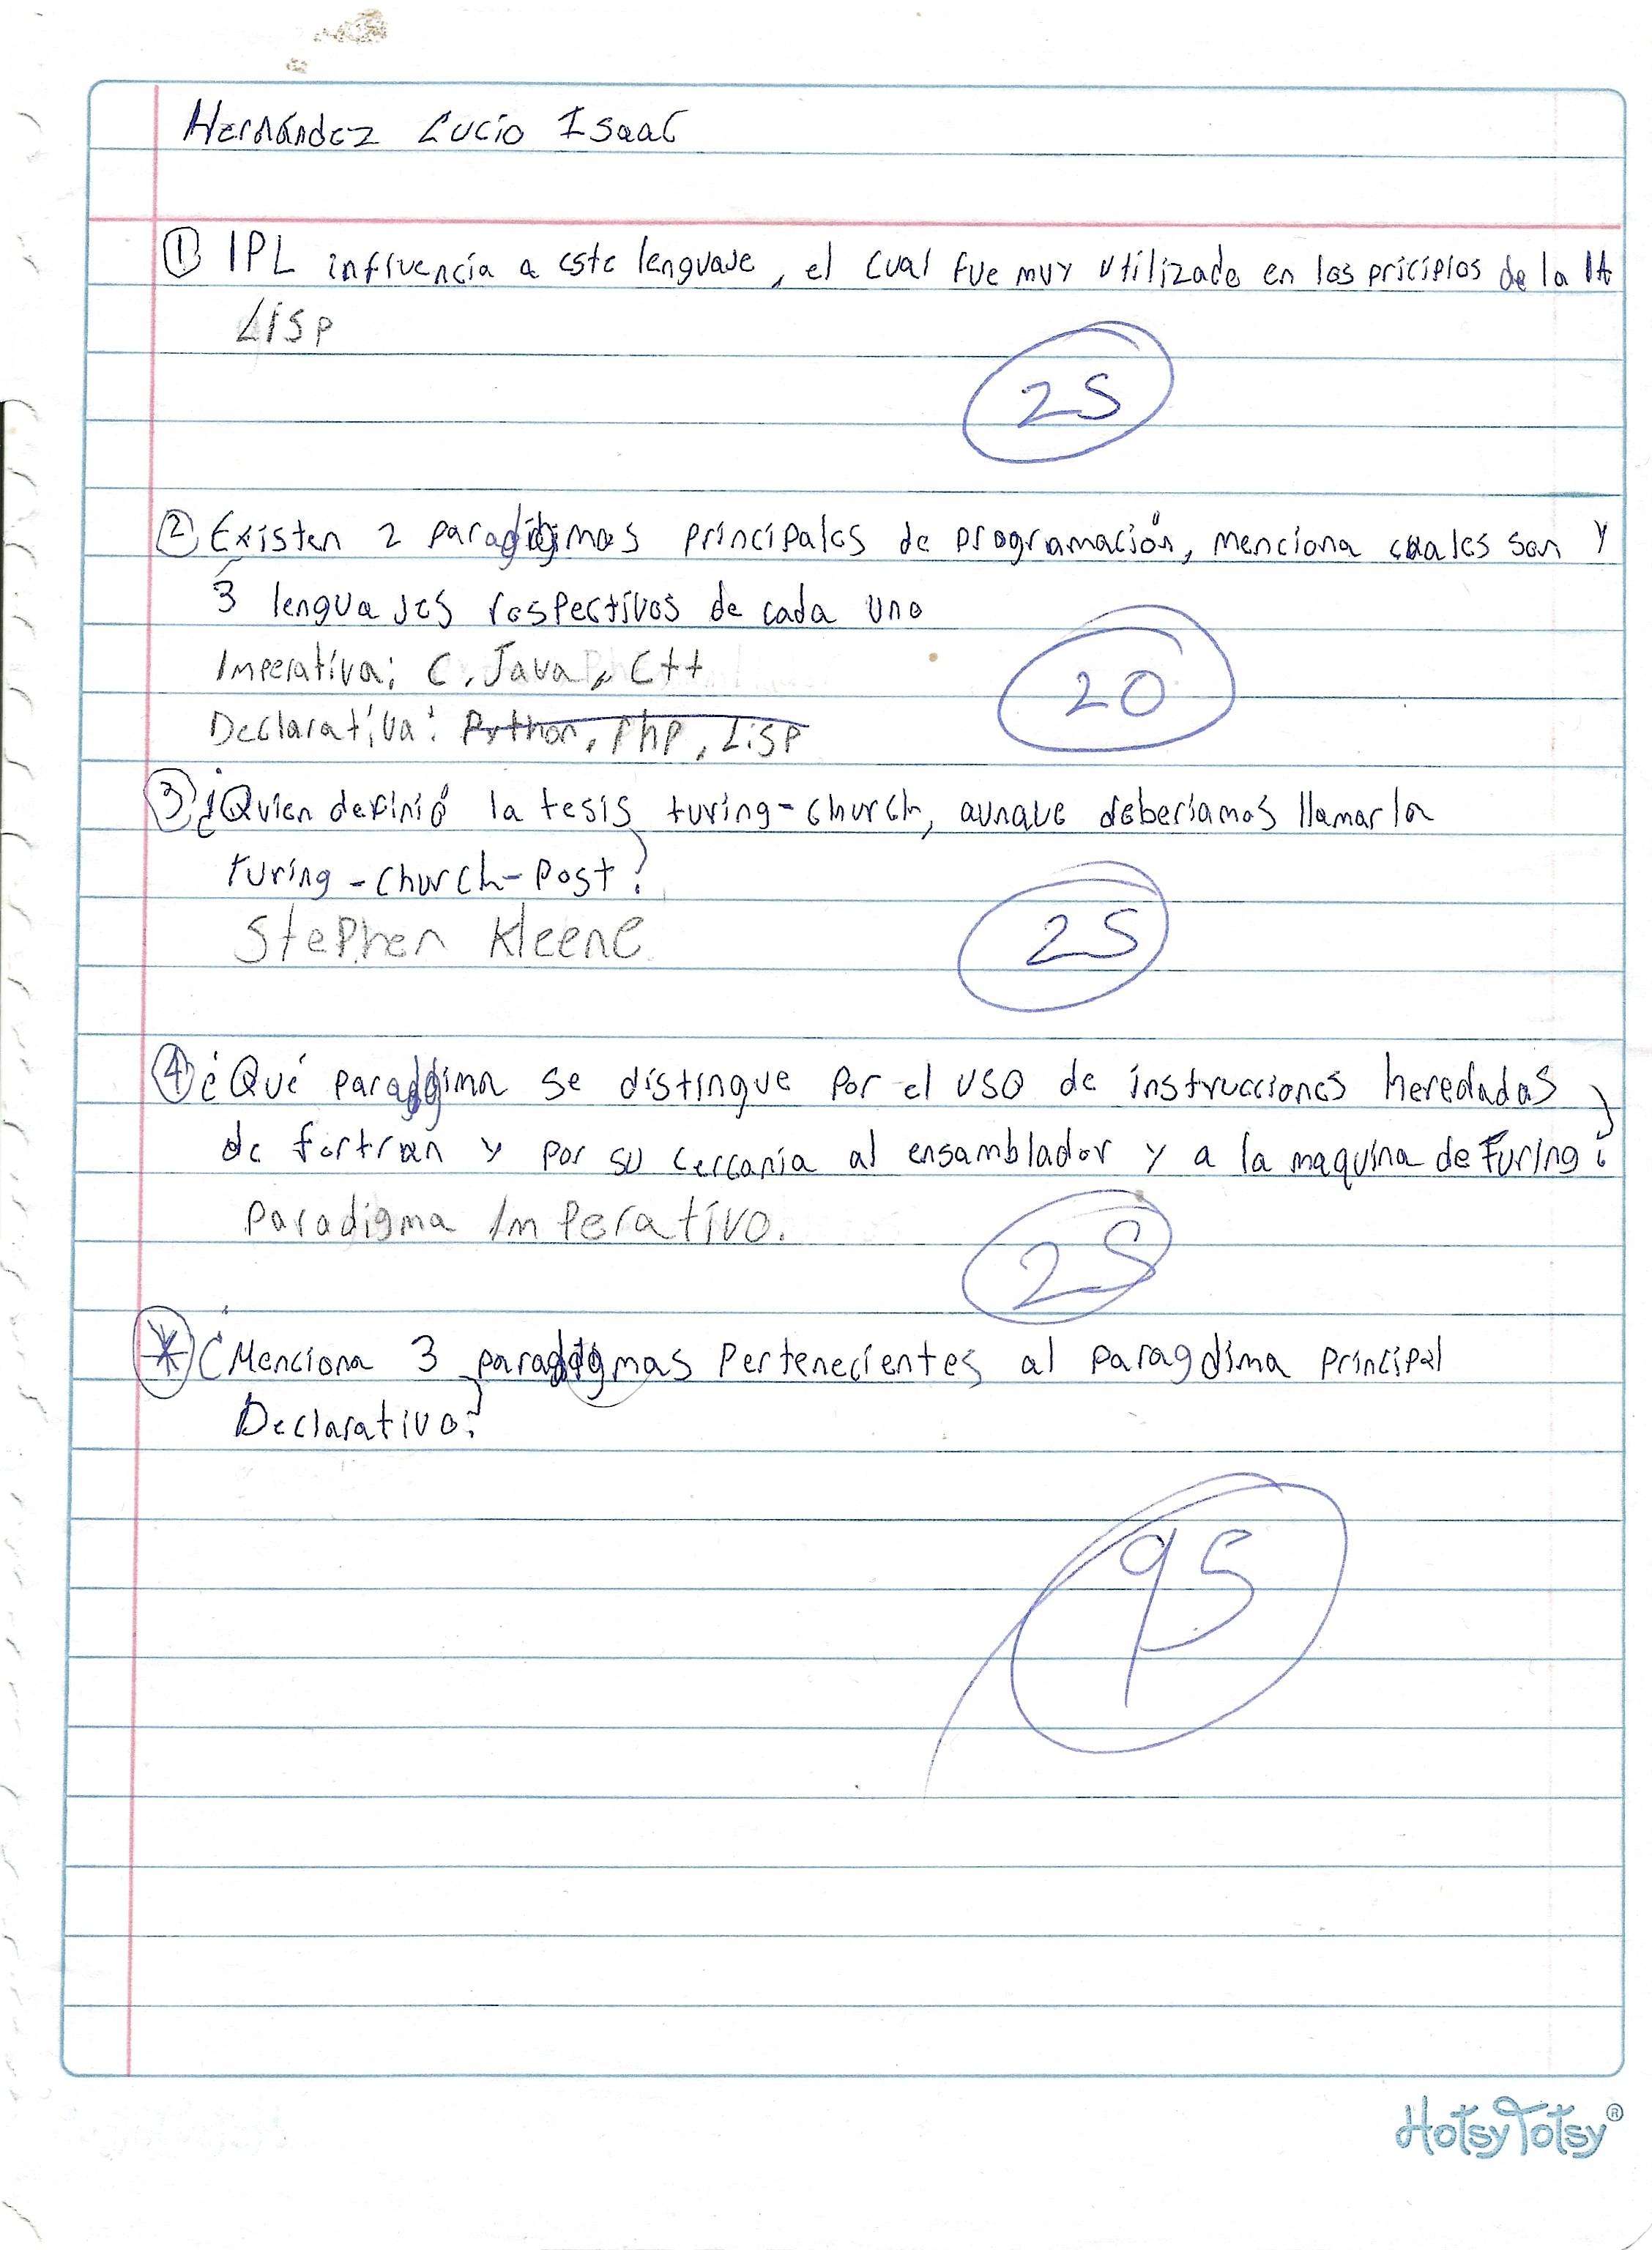 Hernández Lucio Isaac
① IPL influencia a este lenguaje, el cual fue muy utilizado en los pricipios de la IA
Lisp
25
② Existen 2 paradigmas principales de programación, menciona cuales son y
3 lenguajes respectivos de cada uno
Imperativa: C, Java, C++
20
Declarativa: Python, Php, Lisp
③ ¿Quien definió la tesis turing-church, aunque deberíamos llamarla
turing-church-post?
Stephen Kleene
25
④ ¿Qué paradigma se distingue por el uso de instrucciones heredadas
de fortran y por su cercania al ensamblador y a la maquina de Turing?
Paradigma Imperativo.
25
* ¿Menciona 3 paradigmas pertenecientes al paragdima principal
Declarativo?
95
HotsyTotsy®